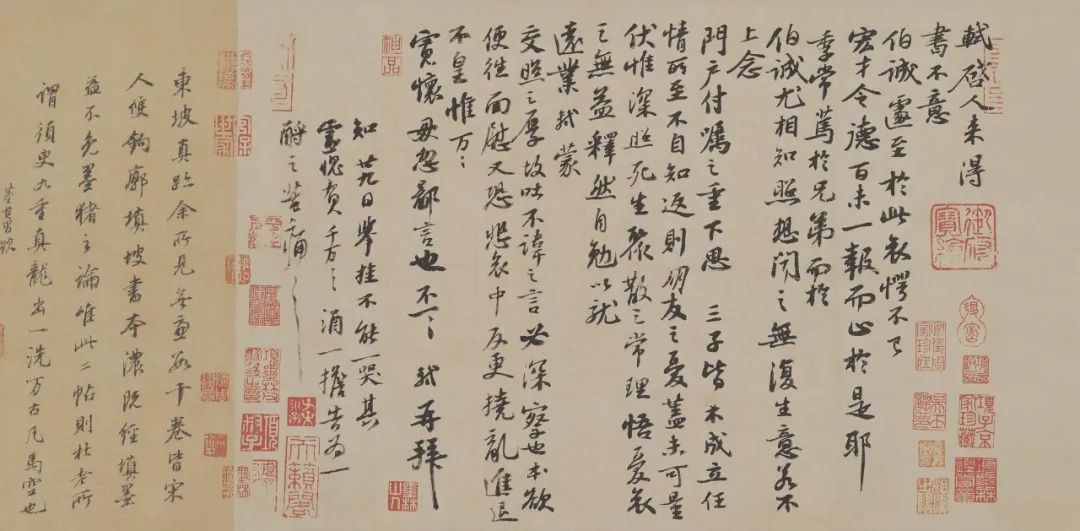 軾啓人来得
書不意
伯誠遽至於此哀愕不已
宏才令德百未一報而止於是耶
季常篤於兄弟而於
伯誠尤相知照想聞之無復生意若不
上念
門户付囑之重下思三子皆不成立任
情所至不自知返則朋友之憂蓋未可量
伏惟深照死生聚散之常理悟憂哀
之無益釋然自勉以就
遠業軾蒙
交照之厚故吐不諱之言必深察也本欲
便往面慰又恐悲哀中反更撓亂進退
不皇惟万〻
寛懷毋忽鄙言也不一〻軾再拜
知廿九日舉挂不能一哭其
靈愧負千万〻酒一擔告為一
酹之苦痛〻
東坡真跡余所見無慮數十卷皆宋
人雙鉤廓填坡書本濃既經填墨
益不免墨猪之論唯此二帖則杜老所
謂須臾九重真龍出一洗万古凡馬空也
董其昌題
神品
項子京家珍藏
墨林山人
天籟閣